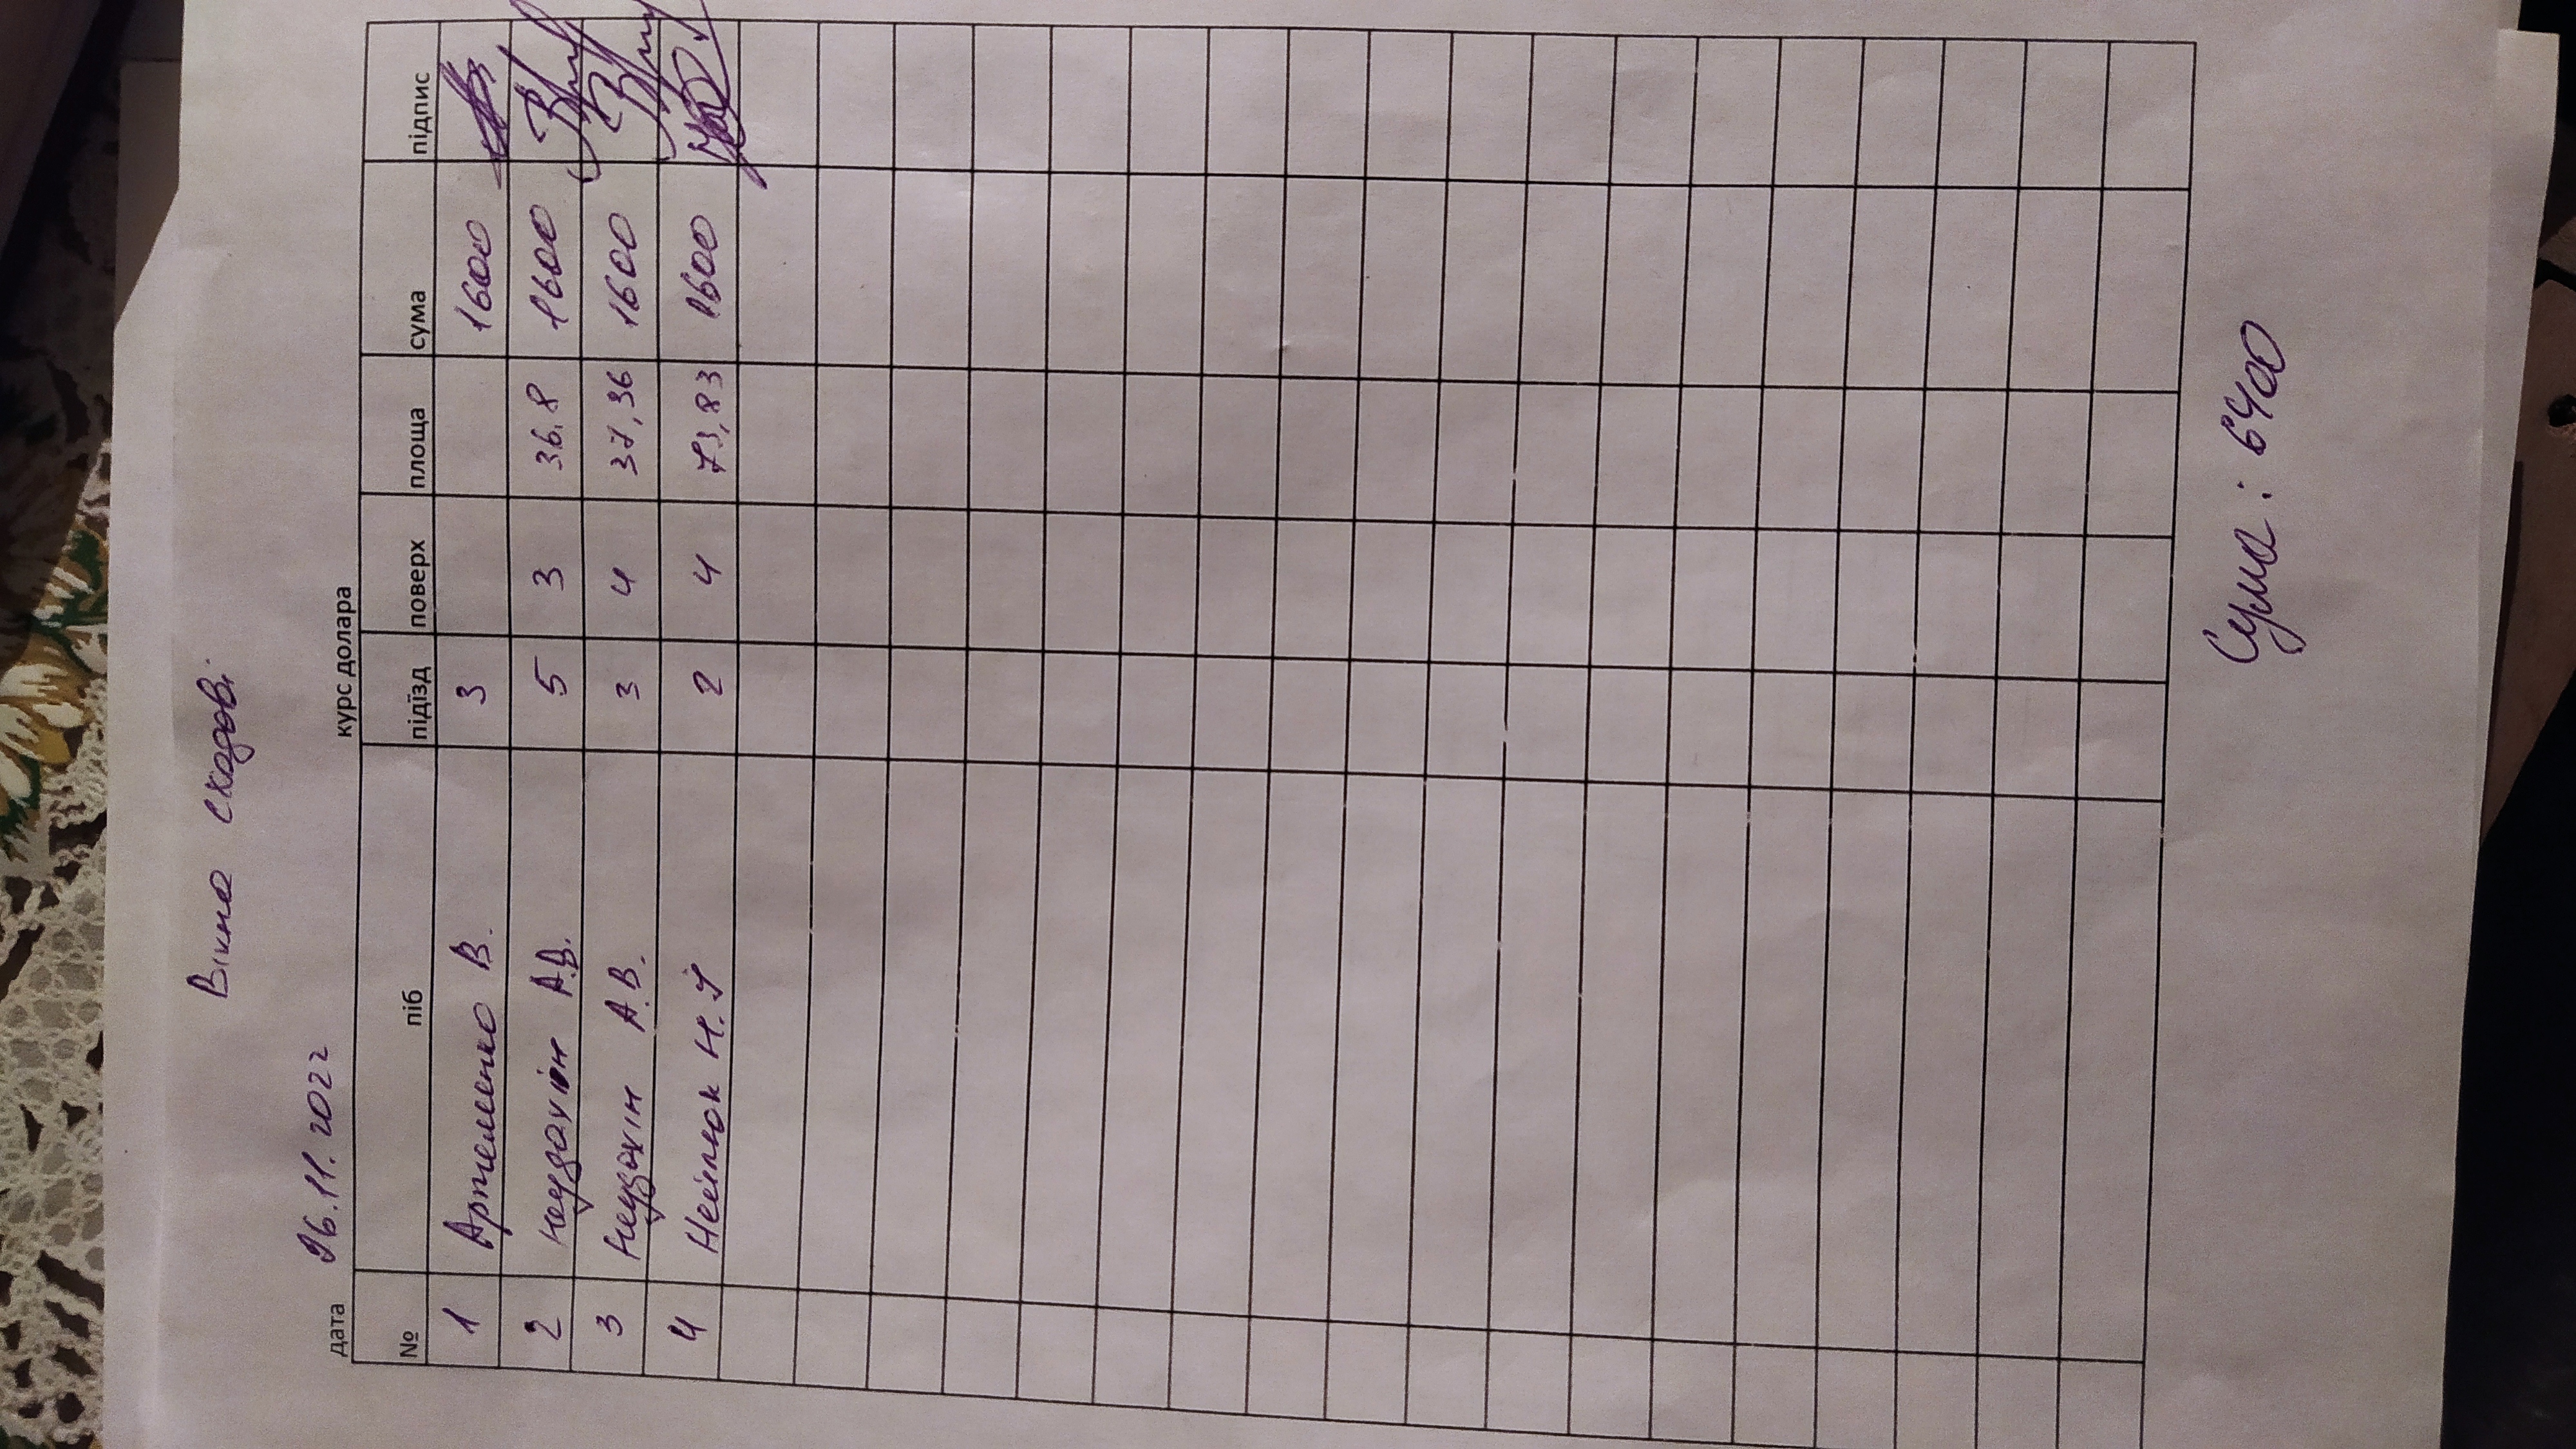 Вікна сходові
дата 26.11.2022 курс долара
№ піб підїзд поверх площа сума підпис
1 Артеменко В. 3 1600
2 Неудахін А.В. 5 3 36.8 1600
3 Неудахін А.В. 3 4 37,36 1600
4 Н.І 2 4 73,83 1600
Сума: 6400